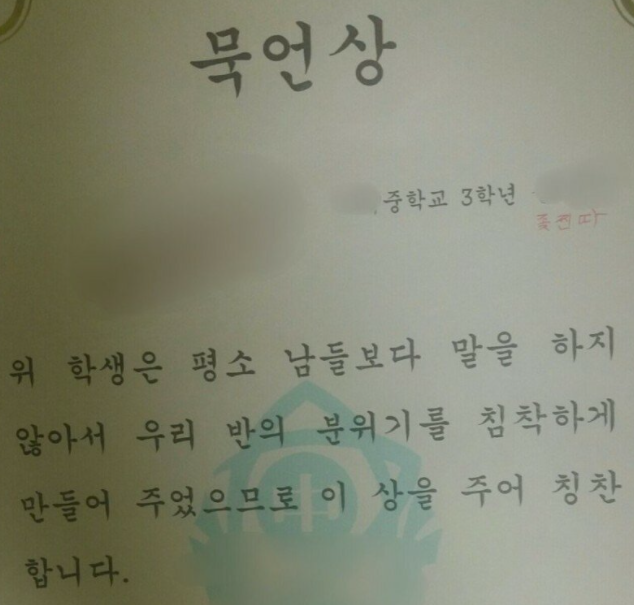 묵언상
중학교 3학년
좆찐따
위 학생은 평소 남들보다 말을 하지
않아서 우리 반의 분위기를 침착하게
만들어 주었으므로 이 상을 주어 칭찬
합니다.
中